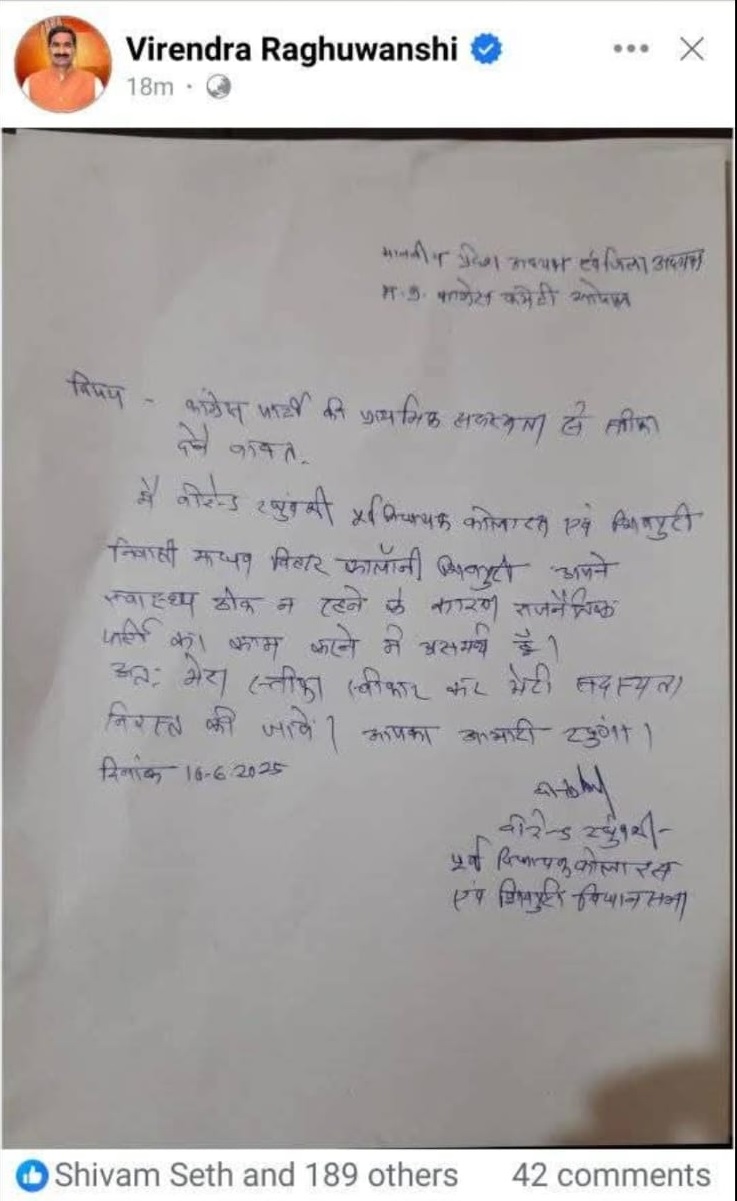 Virendra Raghuwanshi
18m
माननीय प्रदेश अध्यक्ष एवं जिला अध्यक्ष
म.प्र. कांग्रेस कमेटी भोपाल
विषय - कांग्रेस पार्टी की प्राथमिक सदस्यता से स्तीफा
देने बावत.
मैं वीरेन्द्र रघुवंशी पूर्व विधायक कोलारस एवं शिवपुरी
निवासी माधव विहार कालॉनी शिवपुरी अपने
स्वास्थ्य ठीक न रहने के कारण राजनैतिक
पार्टी का काम करने में असमर्थ हूँ।
अतः मेरा स्तीफा स्वीकार कर मेरी सदस्यता
निरस्त की जावे। आपका आभारी रहुंगा।
दिनांक 16-6-2025
वीरेन्द्र रघुवंशी
पूर्व विधायक कोलारस
एवं शिवपुरी विधानसभा
Shivam Seth and 189 others 42 comments